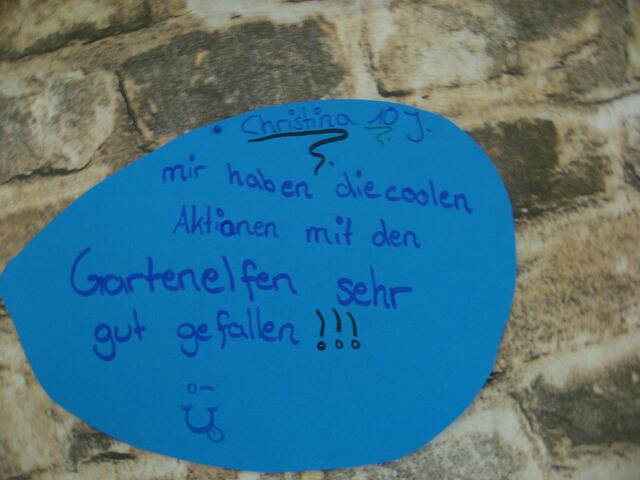 Christina 10 J.
mir haben die coolen
Aktionen mit den
Gartenelfen sehr
gut gefallen !!!